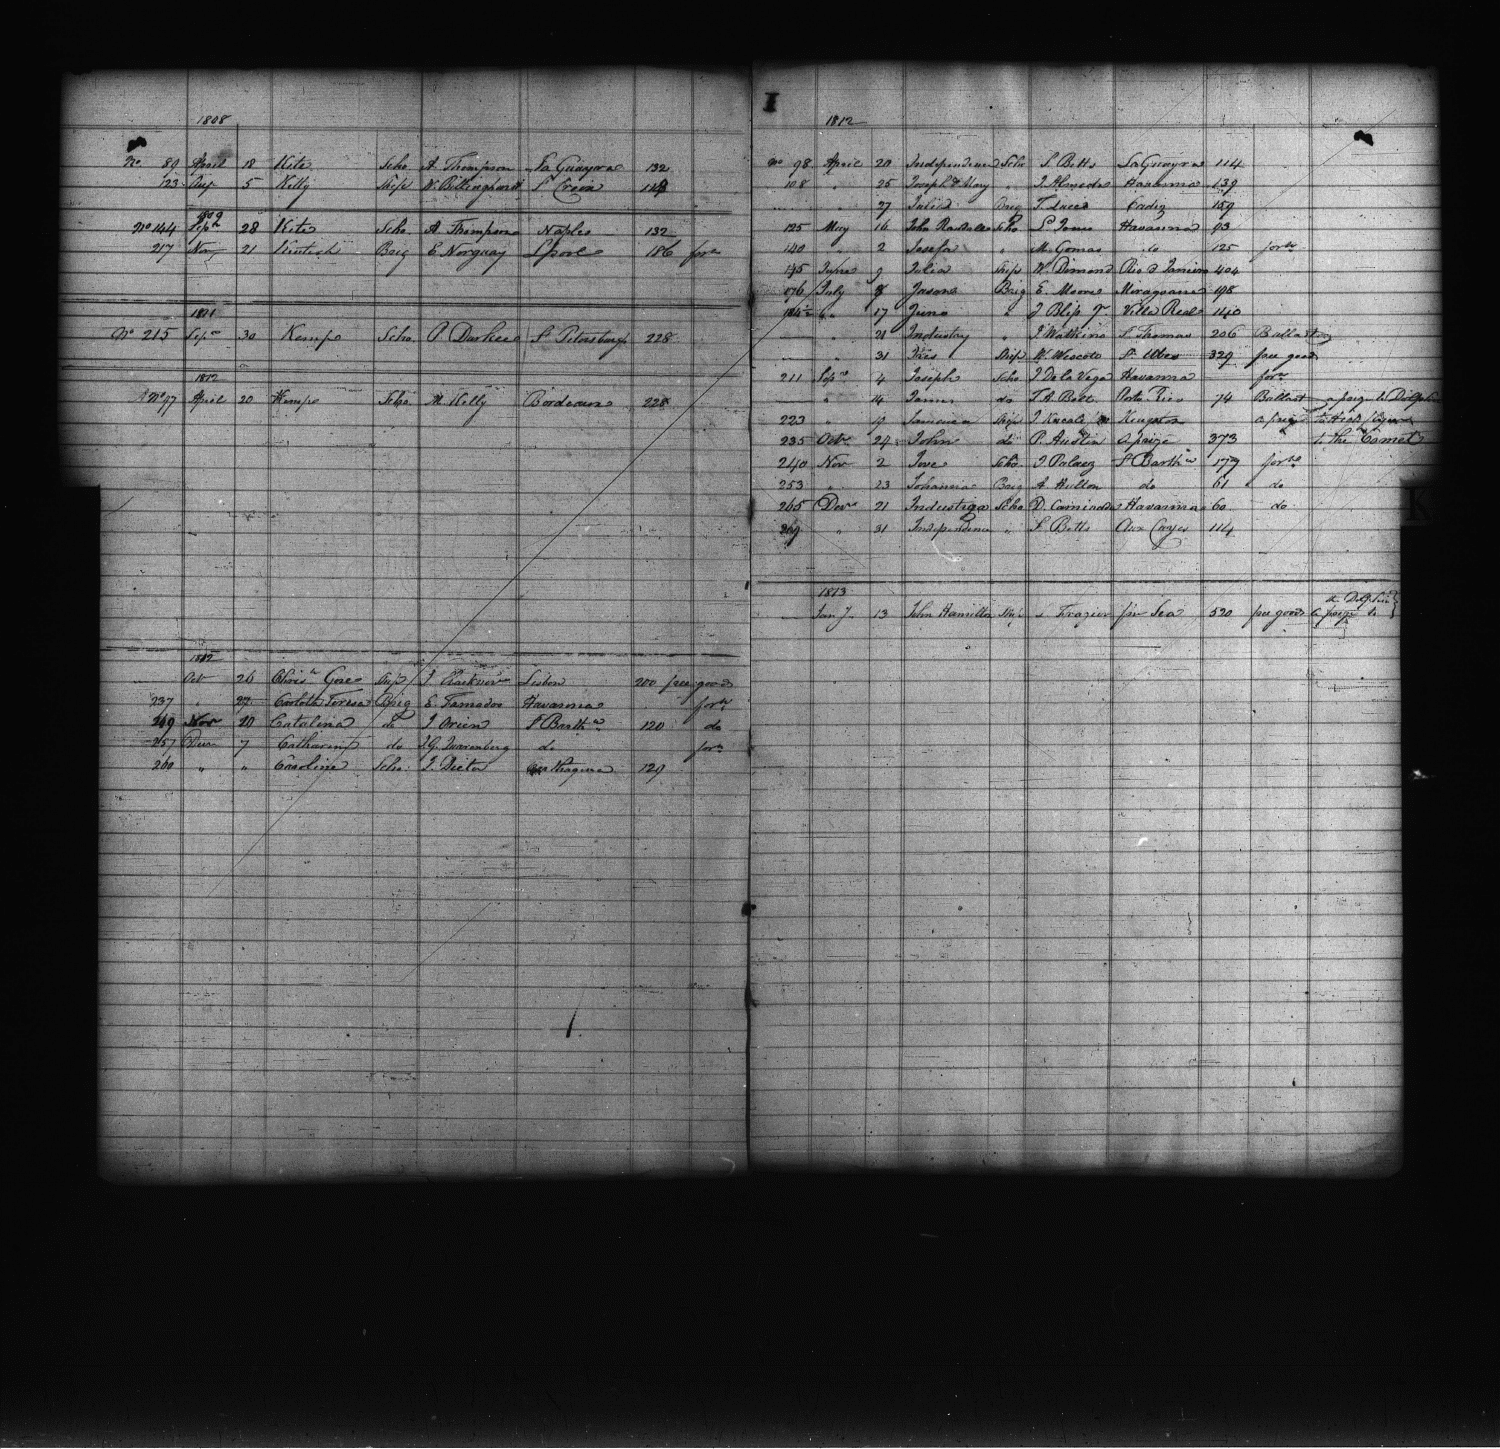 1808
No 80 April 18 Kite Scho A Thompson La Guayra 132
123 Augt 5 Kitty Ship W. Billinghurst St Croix
1809
No 144 Sepr 28 Kite Scho. A. Thompson Naples 132
217 Nov 21 Brig E Norquay Lpool 186 forn
1811
No 215 Sepr 30 Kemp Scho. P Durkee St Petersburg 228
1812
No 97 April 20 Kemp Scho. M. Kelly Bordeaux 228
1812
Oct 26 Chrisn Gore Ship J. Lisbon 200 free goods
237 " 27 Carlota Teresa Brig E. Famados Havanna forn
249 Nov 20 Catalina do J Orien St Barths 120 do
257 Decr 7 Catharine do J.G. Warenberg do forn
260 " " Caroline Scho. J. Dieter Carthagena 129
I
1812
No 98 April 20 Independence Scho S Betts La Guayra 114
108 " 25 Joseph & Mary " J Almeda Havanna 139
" 27 Julia Brig T. Luce Cadiz 159
125 May 16 John Randolph Scho. S Jones Havanna 93
140 " 2 Josefa " M. Gomas do 125 forn
145 June 9 Julia Ship W. Dimond Rio d Janeiro 404
176 July 8 Jason Brig E. Moore 198
" 17 Juno " J Bliss Jr Villa Real 140
" 21 Industry " J Watkins St Thomas 206 Ballast
" 31 Iris Ship W. Wescoto St Ubes 329 free goods
211 Sepr 4 Joseph Scho J De la Vega Havanna forn
" 14 James do T.A. Bett Porto Rico 74 Ballast a prize to Dolphin
223 " 19 Jamaica Ship J Kneale Kingston a prize to High flyer
235 Octr 24 John do P. Austin a prize 373 to the Comet
240 Nov 2 Jove Scho. J Palacz St Barths 177 forn
253 " 23 Johanna Brig A Hulton do 61 do
265 Decr 21 Industriga Scho D. Caminada Havanna 60 do
269 " 31 Independence " S Betts Aux Cayes 114
1813
Jany 13 John Hamilton Ship Frazier for Sea 520 free goods a prize to
a Dolphin
K